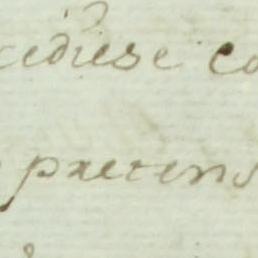 cediese co
pretens